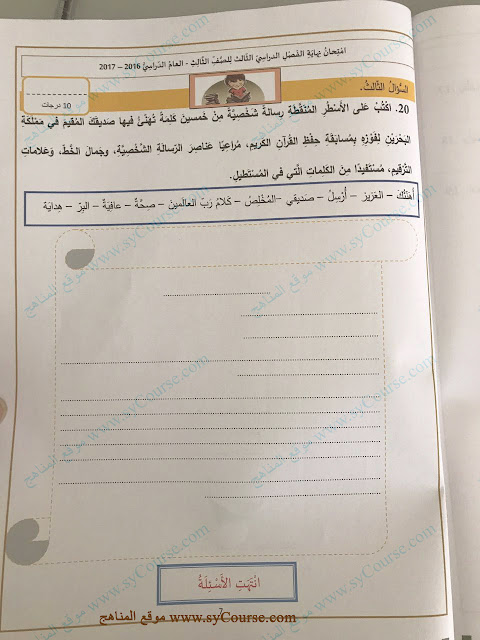 امْتِحانُ نِهايَةِ الفَصْلِ الدراسِيّ الثّالث للصفّ الثّالث - العام الدّراسِيّ 2016 – 2017
السُّؤالُ الثّالثُ.
10 درجات
20. اكْتُبْ عَلى الأَسْطُرِ المُنَقَّطَةِ رِسالَةً شَخْصِيَّةً مِنْ خَمْسينَ كَلِمَةً تُهَنّئُ فيها صَديقَكَ المُقيمَ في مَمْلَكَةِ
البَحْرَيْنِ لِفَوْزِهِ بِمُسابَقَةِ حِفْظِ القُرآنِ الكَريمِ، مُراعِيًا عَناصِرَ الرّسالَةِ الشَّخْصِيَّةِ، وَجَمالَ الخَطِّ، وَعَلاماتِ
التَّرْقيمِ، مُسْتَفيدًا مِنَ الكَلِماتِ الَّتي في المُسْتَطيلِ.
أُهَنّئُكَ – العَزيز – أُرْسِلُ – صَديقي –المُخْلِصُ – كَلامُ رَبّ العالَمينَ – صِحَّةٌ – عافِيَةٌ – البِرّ – هِدايَة
انْتَهَتِ الأَسْئِلَةُ
7
موقع المناهج www.syCourse.com